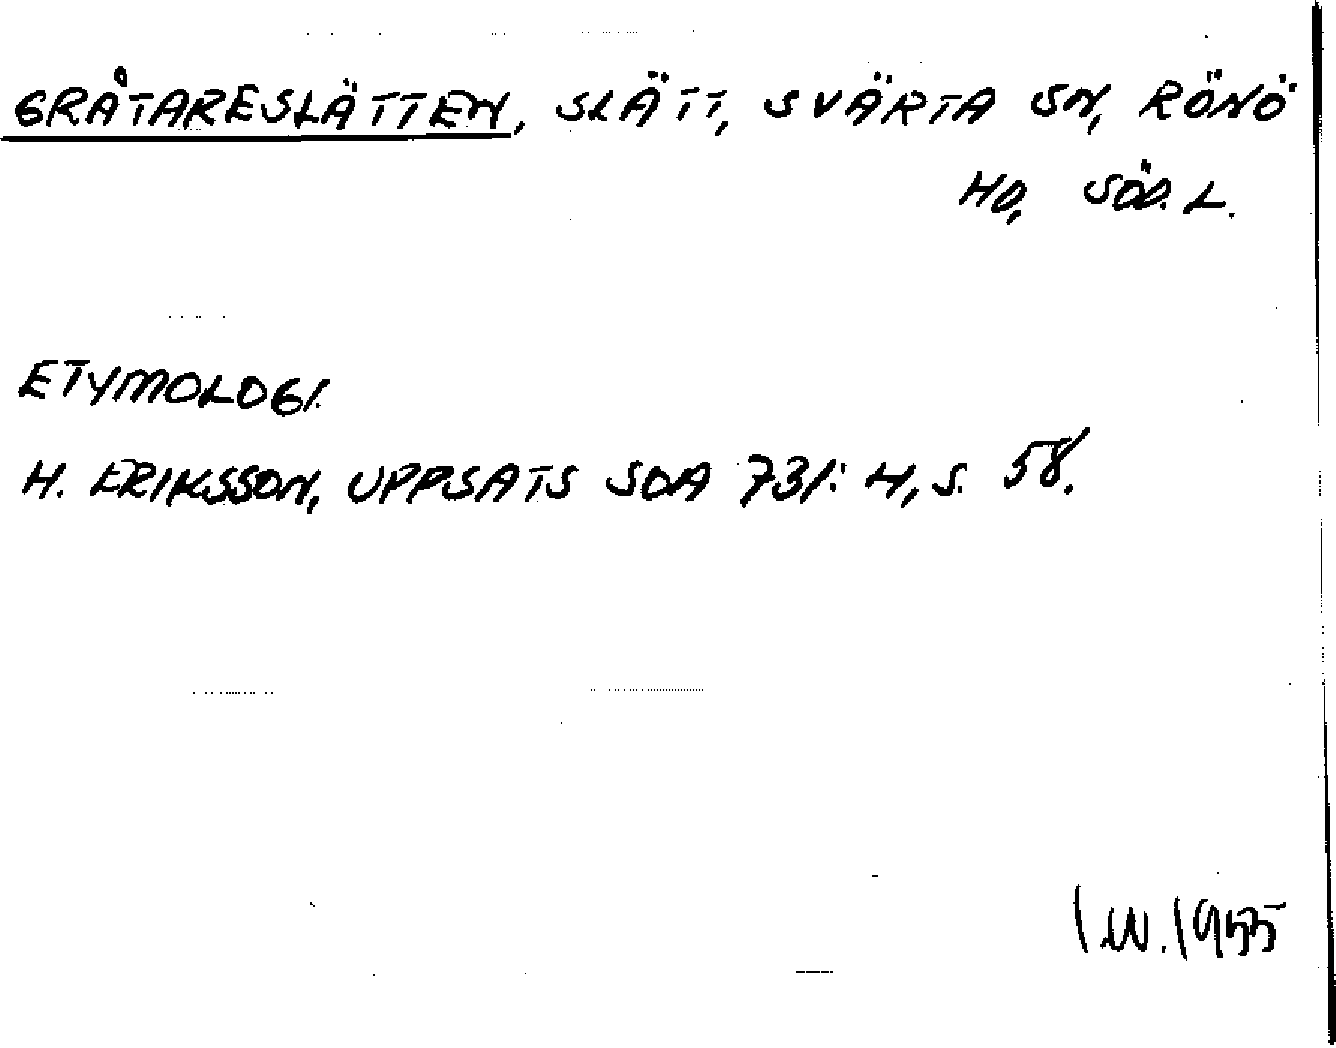 GRÅTARESLÄTTEN, SLÄTT, SVÄRTA SN, RÖNÖ
HD, SÖD. L.
ETYMOLOGI.
H. ERIKSSON, UPPSATS SOA 731: H, S. 58.
1955